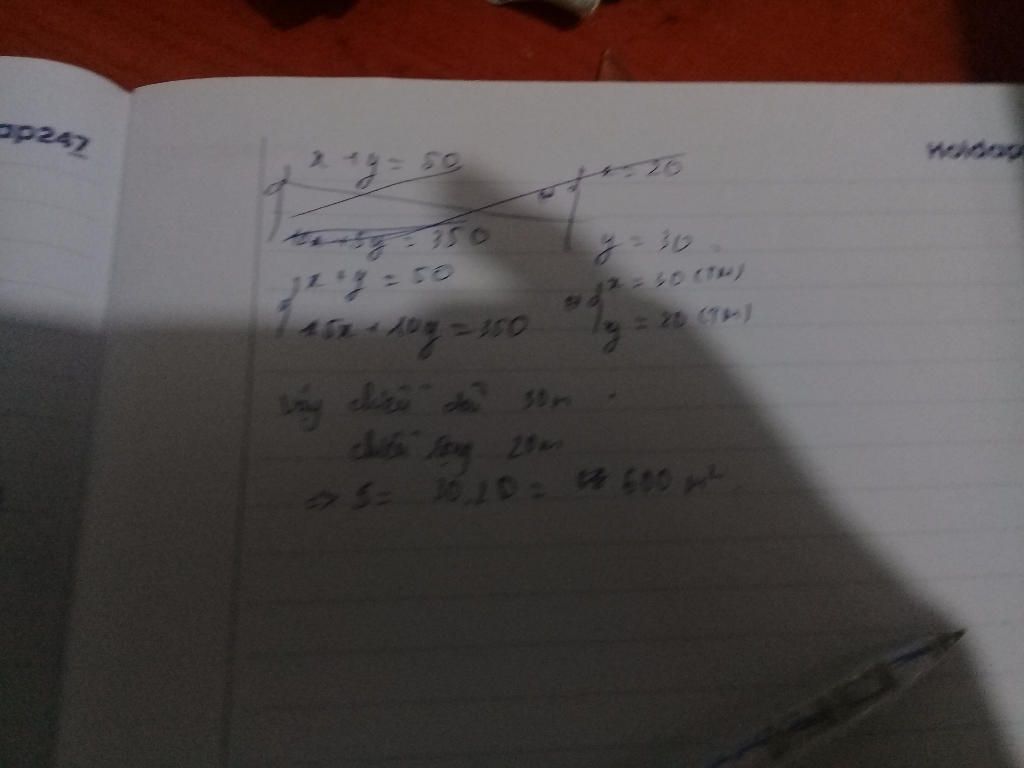 ap247
Hoidap
x + y = 50
x = 20
5y = 350
y = 30
x + y = 50
x = 30 (TM)
15x + 10y = 350
y = 20 (TM)
Vậy chiều dài 30m
chiều rộng 20m
=> S = 30.20 = 600 m²